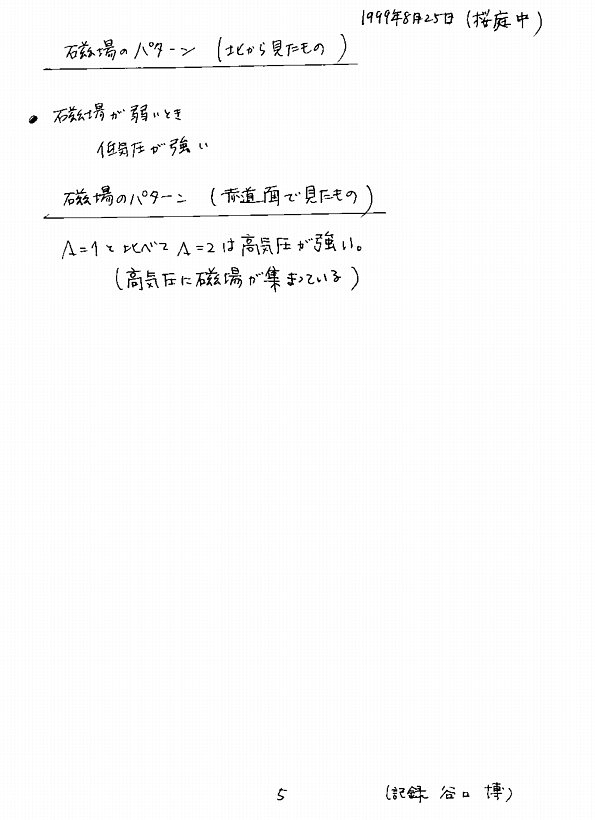 1999年8月25日 (桜庭中)
磁場のパターン (北から見たもの)
• 磁場が弱いとき
低気圧が強い
磁場のパターン (赤道面で見たもの)
Λ=1と比べて Λ=2は高気圧が強い。
(高気圧に磁場が集まっている)
5
(記録 谷口 博)